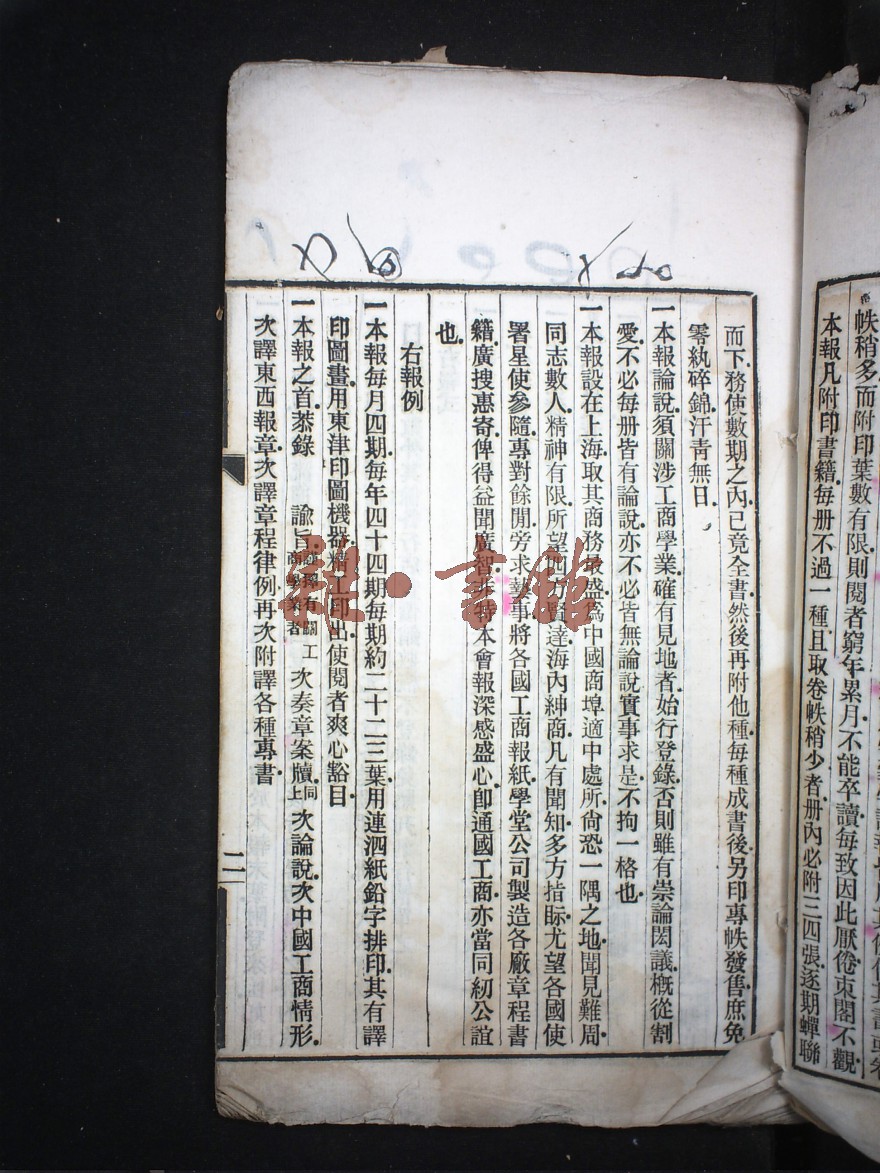 帙稍多而附印葉數有限則閱者窮年累月不能卒讀每致因此厭倦束閣不觀
本報凡附印書籍每册不過一種且取卷帙稍少者册內必附三四張逐期蟬聯
而下務使數期之內已竟全書然後再附他種每種成書後另印專帙發售庶免
零紈碎錦汗靑無日
一本報論說須關涉工商學業確有見地者始行登錄否則雖有崇論閎議槪從割
愛不必每册皆有論說亦不必皆無論說實事求是不拘一格也
一本報設在上海取其商務最盛爲中國商埠適中處所尙恐一隅之地聞見難周
同志數人精神有限所望四方賢達海內紳商凡有聞知多方指眎尤望各國使
署星使參隨專對餘閒旁求藝事將各國工商報紙學堂公司製造各廠章程書
籍廣搜惠寄俾得益聞廣智非特本會報深感盛心卽通國工商亦當同紉公誼
也
右報例
一本報每月四期每年四十四期每期約二十二三葉用連泗紙鉛字排印其有譯
印圖畫用東津印圖機器精工印出使閱者爽心豁目
一本報之首恭錄 諭旨謹擇有關工商學業者次奏章案牘同上次論說次中國工商情形
次譯東西報章次譯章程律例再次附譯各種專書
二
雜·書館